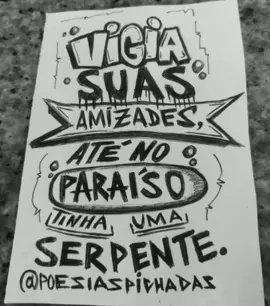 VIGIA
SUAS
AMIZADES,
ATÉ NO
PARAÍSO
TINHA UMA
SERPENTE.
@POESIASPICHADAS